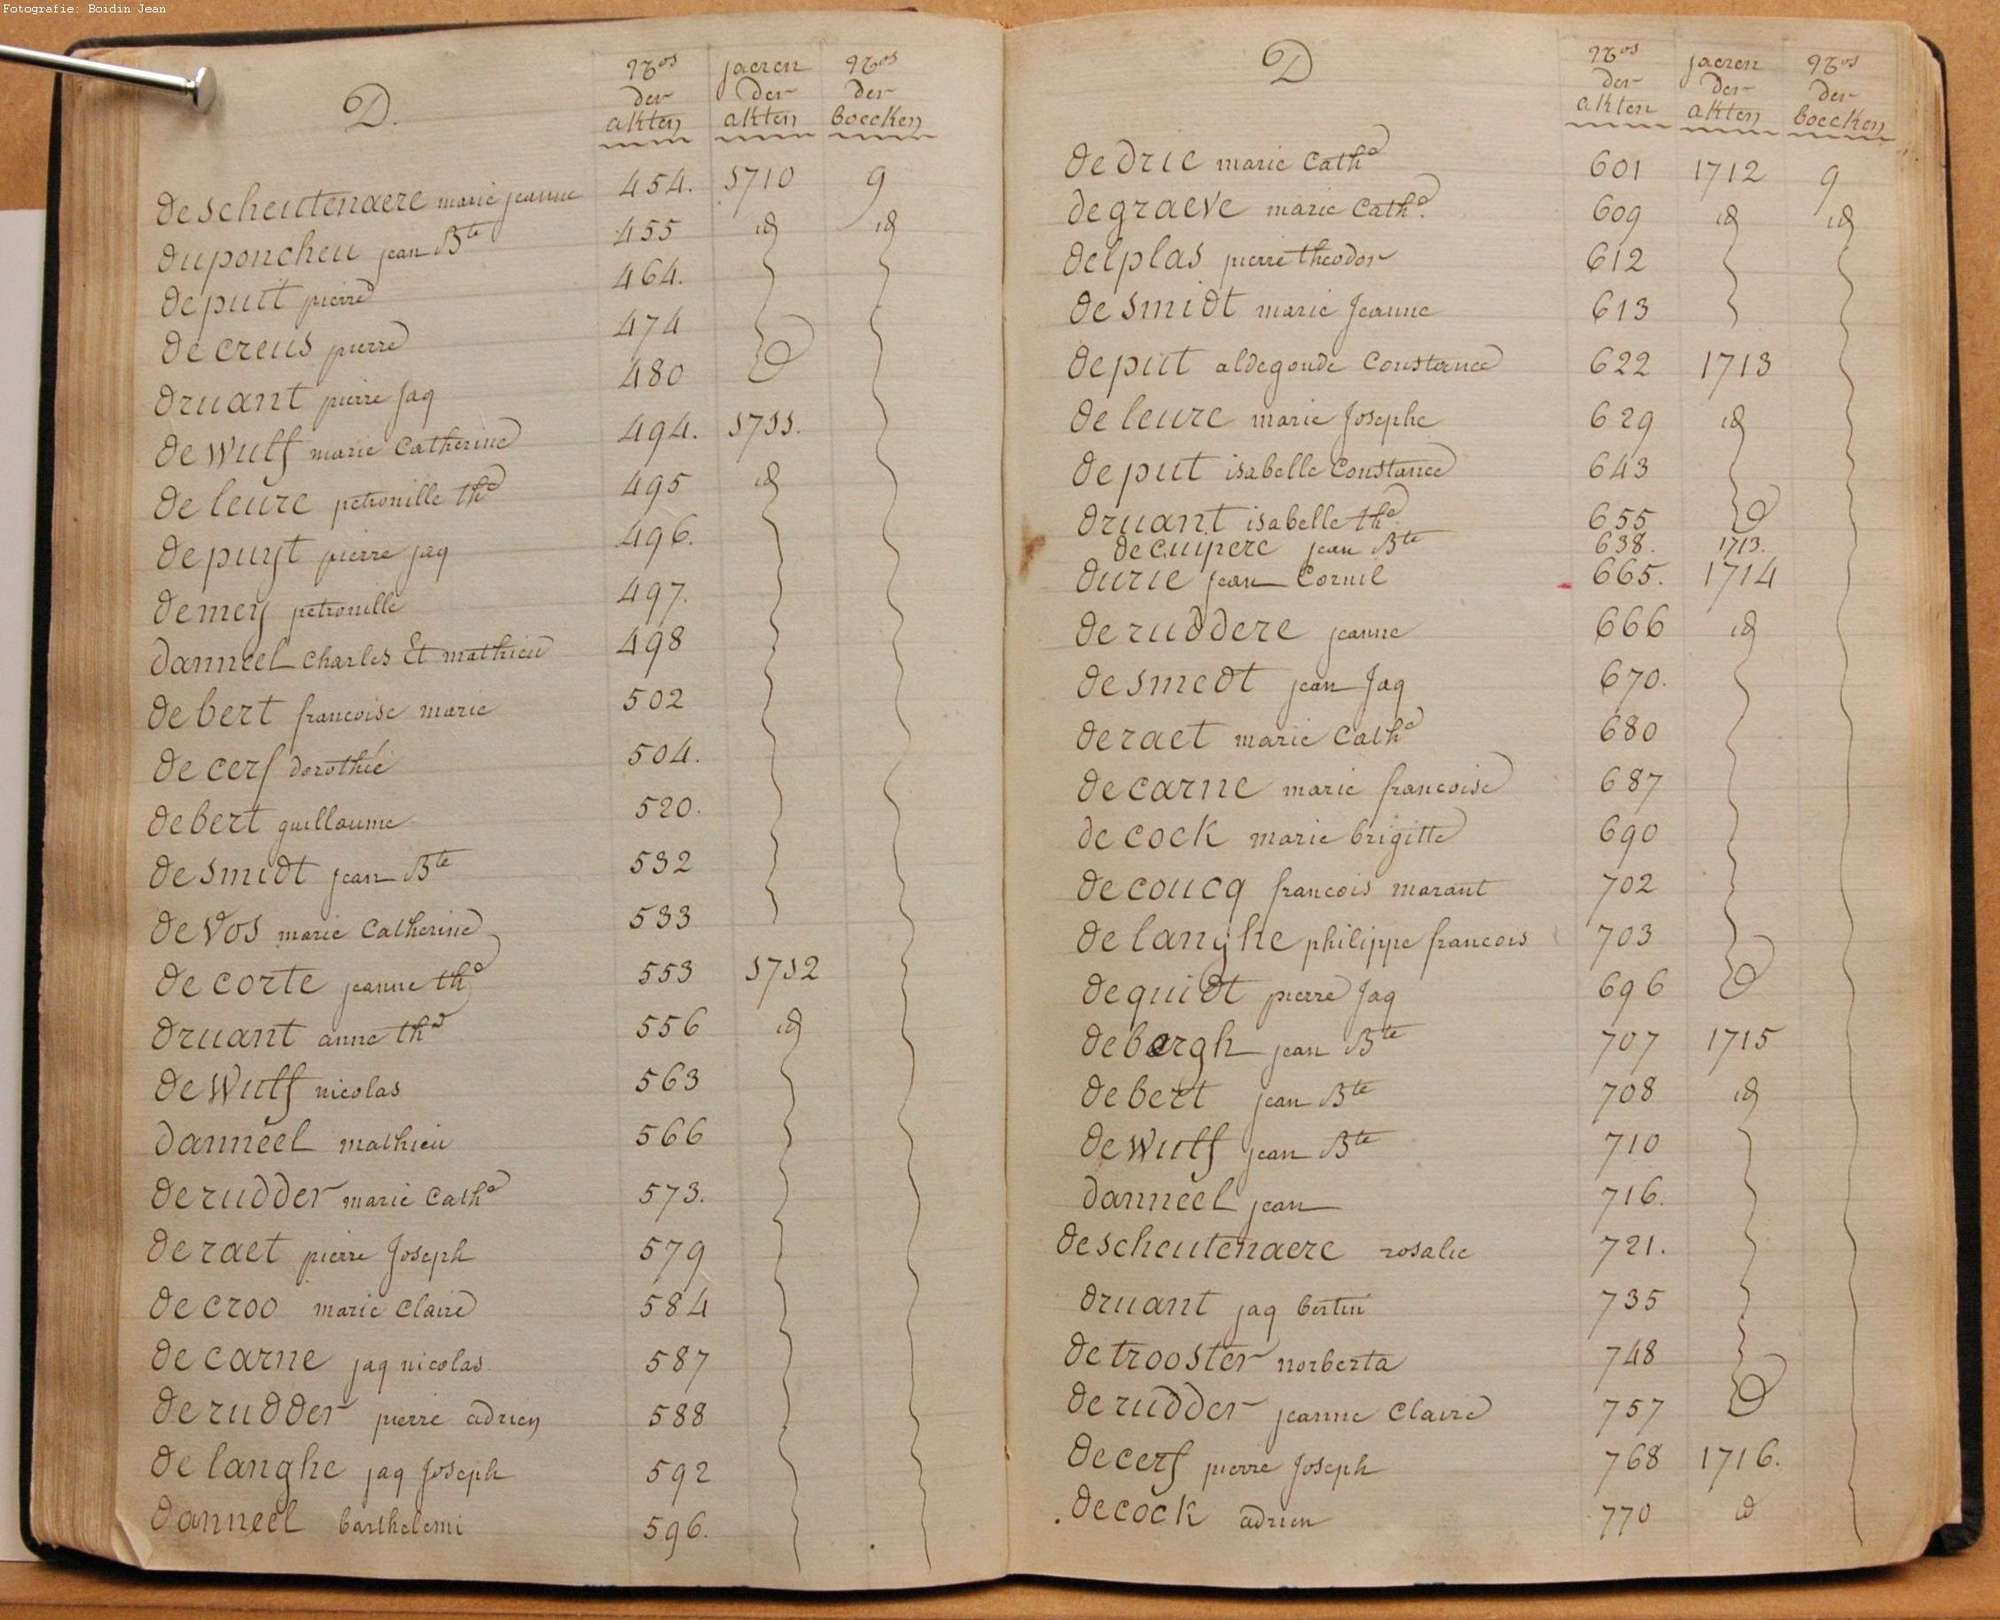 Fotografie: Boidin Jean
D.
Nos der akten
jaeren der akten
Nos der boecken
de scheutenaere marie jeanne 454. 1710 9
duponcheu jean Bte 455 id id
de puit pierre 464.
de creus pierre 474
druant pierre jaq 480
de wulf marie Catherine 494. 1711.
de leure petronille the 495 id
de puyt pierre jaq 496.
de mey petronille 497.
danneel Charles Et mathieu 498
de bert francoise marie 502
de cerf dorothée 504.
de bert guillaume 520.
de smidt jean Bte 532
de vos marie Catherine 533
de corte jeanne the 553 1712
druant anne the 556 id
de wulf nicolas 563
danneel mathieu 566
de rudder marie Cathe 573.
de raet pierre Joseph 579
de croo marie Claire 584
de carne jaq nicolas 587
de rudder pierre adrien 588
de langhe jaq Joseph 592
danneel barthelemi 596.
D
Nos der akten
jaeren der akten
Nos der boecken
de drie marie Cathe 601 1712 9
de graeve marie Cathe. 609 id id
delplas pierre theodor 612
de smidt marie Jeanne 613
de put aldegonde Constance 622 1713
de leure marie Josephe 629 id
de put isabelle Constance 643
druant isabelle the 655
de cuipere jean Bte 638. 1713.
durie jean Cornil 665. 1714
de ruddere jeanne 666 id
de smedt jean Jaq 670.
de raet marie Cathe 680
de carne marie francoise 687
de cock marie brigitte 690
de coucq francois marant 702
de langhe philippe francois 703
de quidt pierre Jaq 696
de bergh jean Bte 707 1715
de bert jean Bte 708 id
de wulf jean Bte 710
danneel jean 716.
de scheutenaere rosalie 721.
druant jaq bertin 735
de trooster norberta 748
de rudder jeanne Claire 757
de cerf pierre Joseph 768 1716.
de cock adrien 770 id